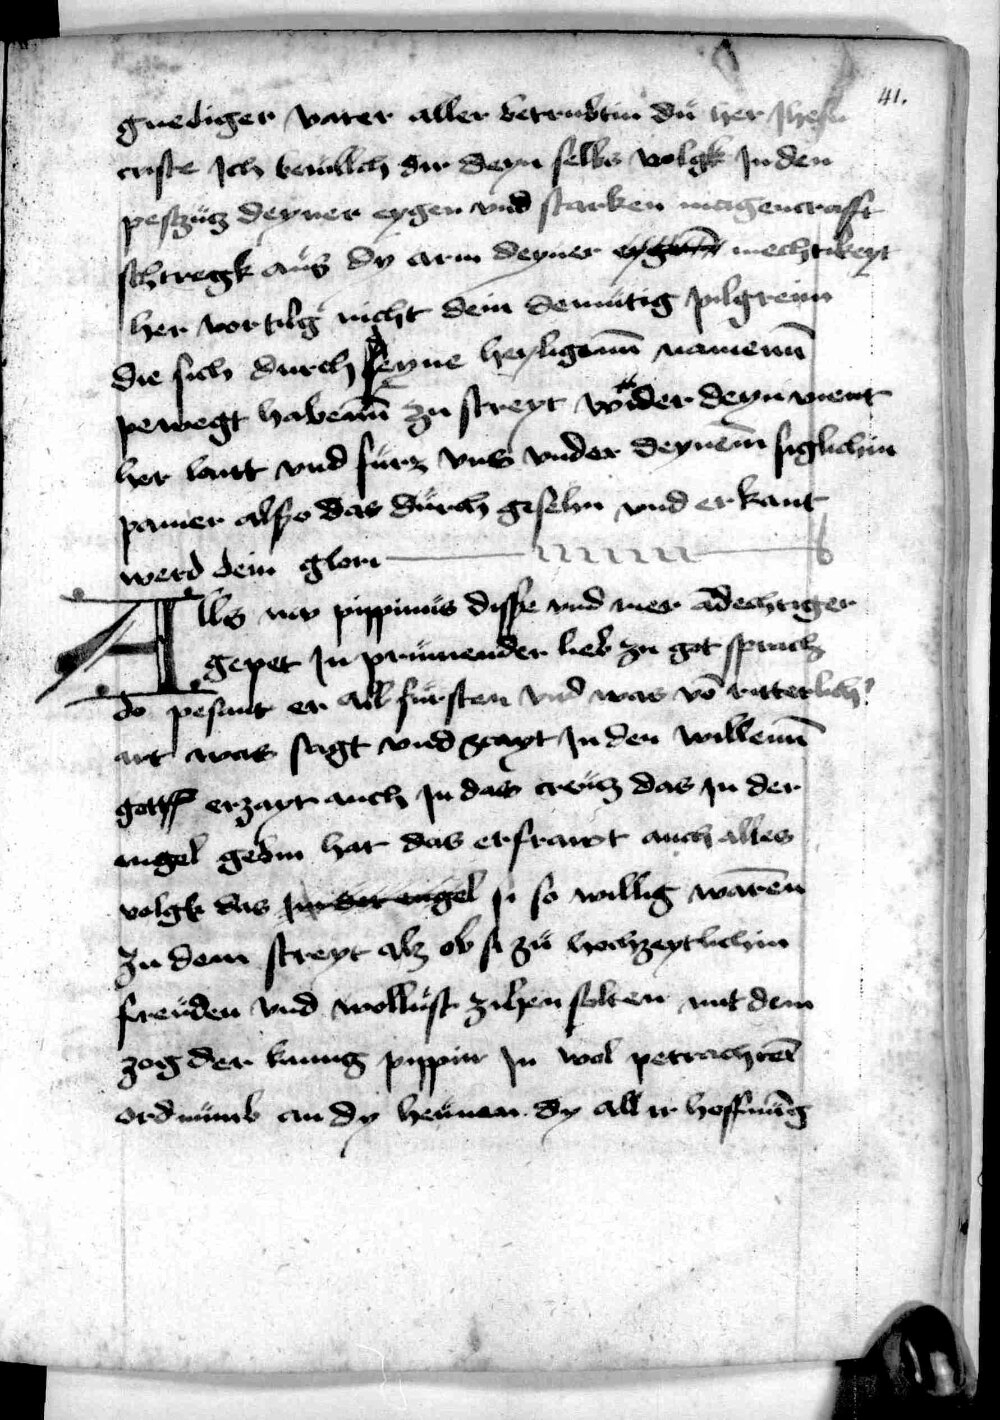 41.
gnediger vater aller betrubtin du her Jhesu
criste Ich bevilch dir deyn selbs volgk In den
peschücz deyner eygen vnd starken magencrafft
schtregk aüs dy arm deyner mechtikeyt
her vortilg nicht dein demütig pilgreim
die sich durch deyne heyligenn namenn
pewegt habenn zu streyt wider deyn vient
her laitt vnd fürz vns vnder deynem siglichin
panier alszo das dürch gesehn vnd erkant
werd dein glori
Alls nw pippinus disse vnd mer adechtiger
gepet In prinnender lieb zu got sprach
do pesant er all fürsten vnd was vō ritterlich
art was sagt vnd zayt In den willenn
gottes erzayt auch In das creücz das In der
engel gebin hat das erfrawt auch alles
volgk das In der engel si so willig warēn
zu dem streyt alz ob si zü hochzeytlichin
freüden vnd wollüst zihen solten mit dem
zog der kunig pippin In wol petrachter
ordnunb an dy heünen dy all ir hoffnüng